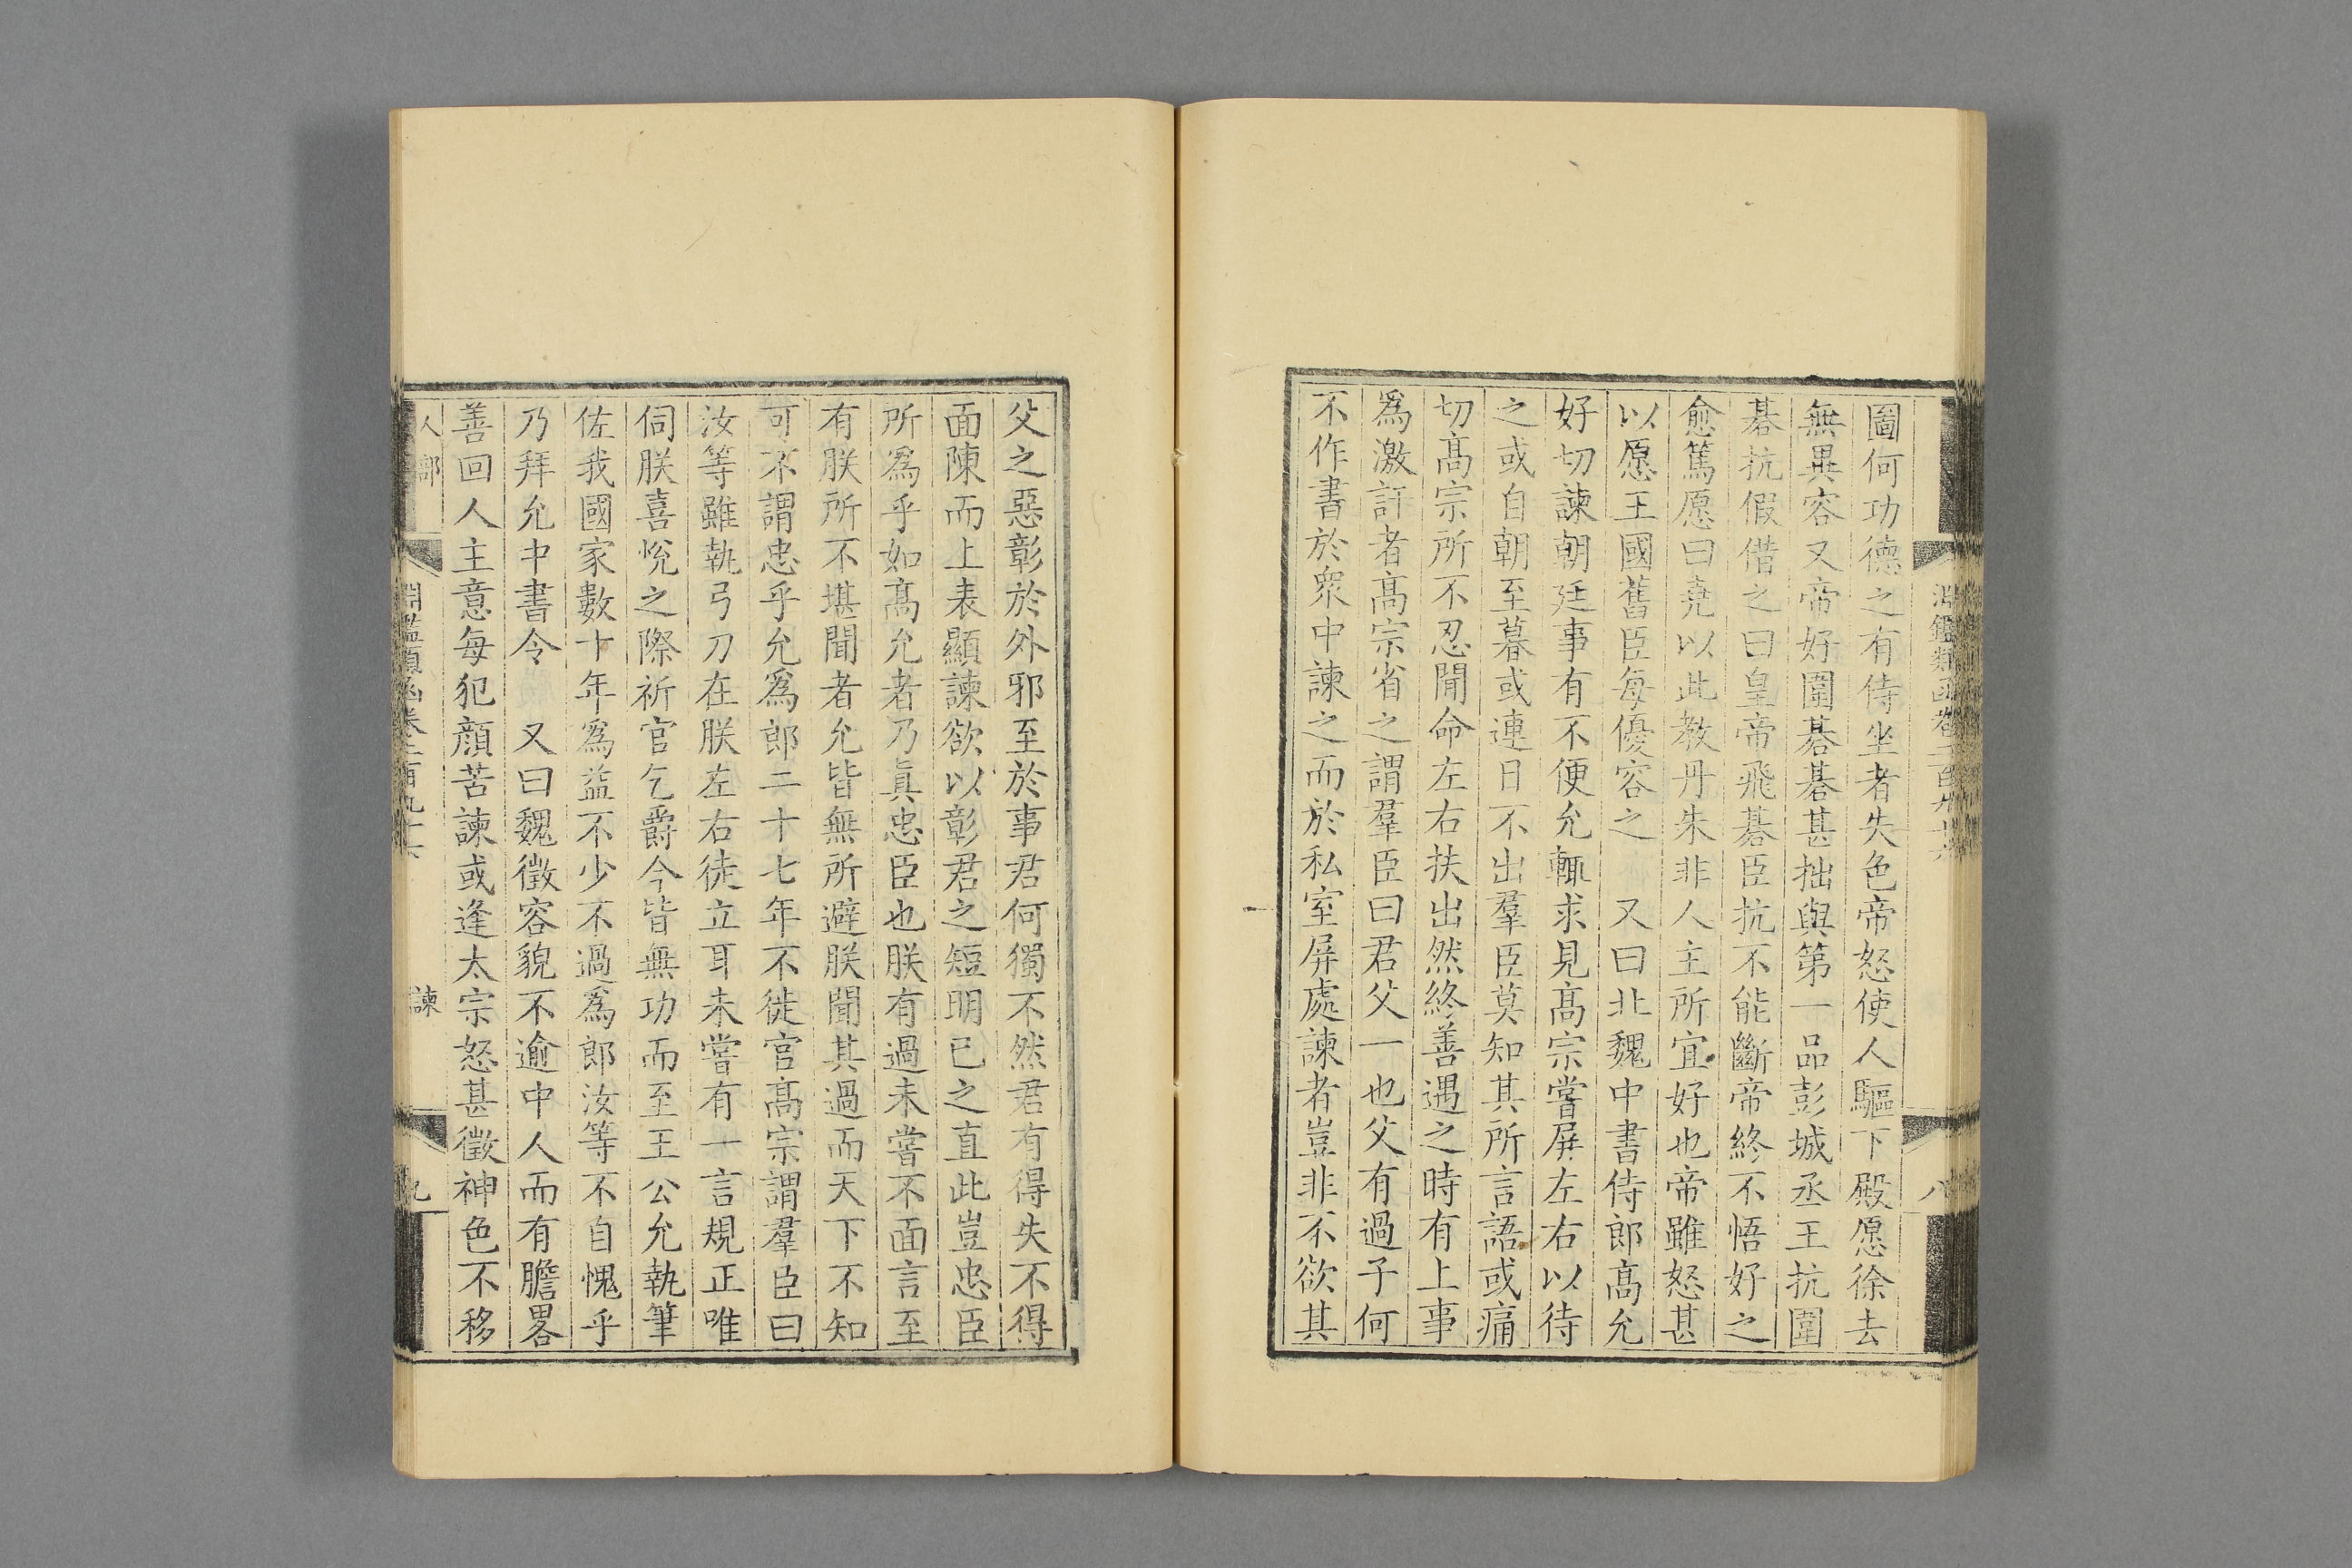 圖何功德之有侍坐者失色帝怒使人驅下殿愿徐去
無異容又帝好圍碁碁甚拙與第一品彭城丞王抗圍
碁抗假借之曰皇帝飛碁臣抗不能斷帝終不悟好之
愈篤愿曰堯以此教丹朱非人主所宜好也帝雖怒甚
以愿王國舊臣每優容之 又曰北魏中書侍郎高允
好切諫朝廷事有不便允輒求見高宗嘗屏左右以待
之或自朝至暮或連日不出羣臣莫知其所言語或痛
切高宗所不忍聞命左右扶出然終善遇之時有上事
爲激訐者高宗省之謂羣臣曰君父一也父有過子何
不作書於衆中諫之而於私室屏處諫者豈非不欲其
淵鑑類函卷二百九十六
八
父之惡彰於外邪至於事君何獨不然君有得失不得
面陳而上表顯諫欲以彰君之短明已之直此豈忠臣
所爲乎如高允者乃眞忠臣也朕有過未嘗不面言至
有朕所不堪聞者允皆無所避朕聞其過而天下不知
可不謂忠乎允爲郎二十七年不徙官高宗謂羣臣曰
汝等雖執弓刀在朕左右徒立耳未嘗有一言規正唯
伺朕喜悅之際祈官乞爵今皆無功而至王公允執筆
佐我國家數十年爲益不少不過爲郎汝等不自愧乎
乃拜允中書令 又曰魏徵容貌不逾中人而有膽畧
善回人主意每犯顏苦諫或逢太宗怒甚徵神色不移
人部
淵鑑類函卷二百九十六
諫
九